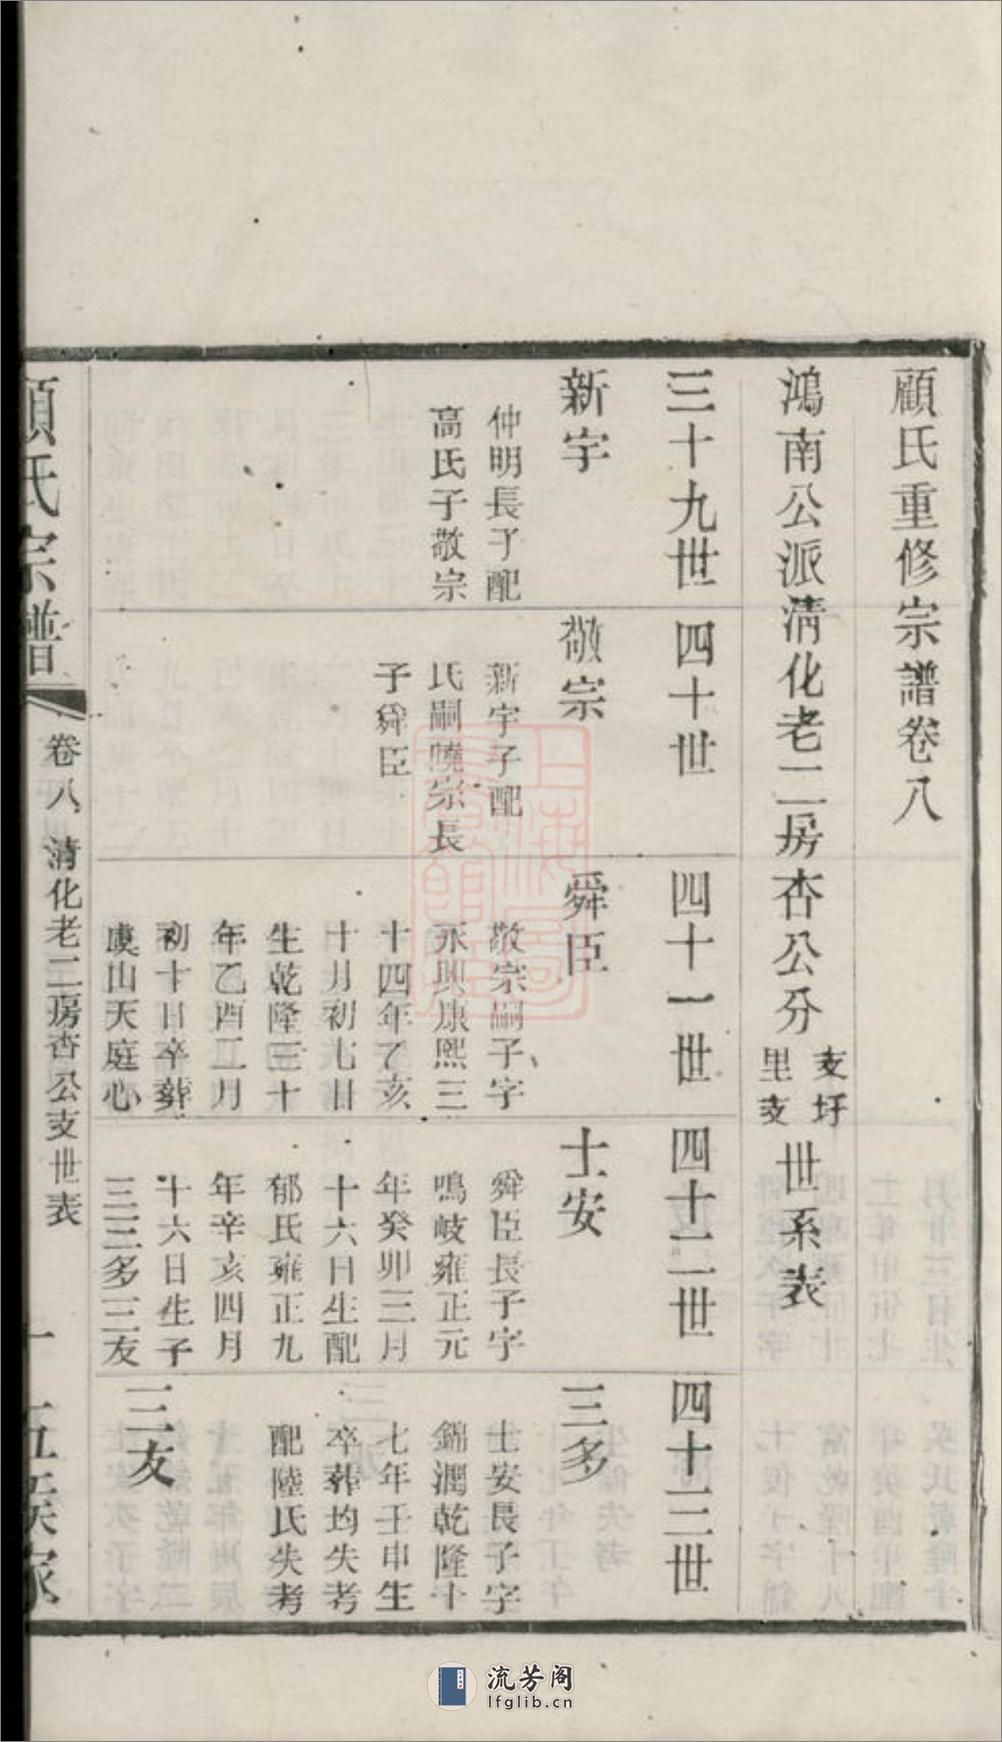 顧氏重修宗譜卷八
鴻南公派清化老二房杏公分
支圩
里支
世系表
三十九世
新宇
仲明長子配
高氏子敬宗
四十世
敬宗
新宇子配
氏嗣曉宗長
子舜臣
四十一世
舜臣
敬宗嗣子字
永興康熙三
十四年乙亥
十月初七日
生乾隆三十
年乙酉二月
初十日卒葬
虞山天庭心
四十二世
士安
舜臣長子字
鳴岐雍正元
年癸卯三月
十六日生配
郁氏雍正九
年辛亥四月
十六日生子
三三多三友
四十三世
三多
士安長子字
錦潤乾隆十
七年壬申生
卒葬均失考
配陸氏失考
三友
顧氏宗譜
卷八
清化老二房杏公支世表
一
流芳阁
lfglib.cn